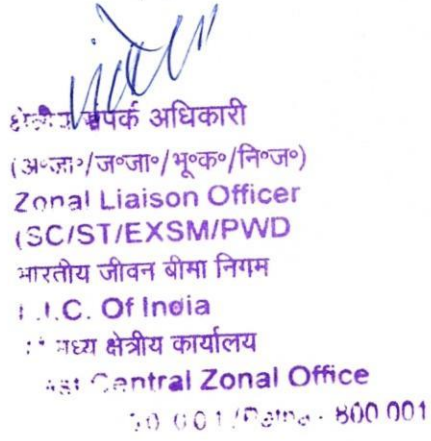 संपर्क अधिकारी
(अ॰जा॰/ज॰जा॰/भू॰क॰/नि॰ज॰)
Zonal Liaison Officer
(SC/ST/EXSM/PWD
भारतीय जीवन बीमा निगम
L.I.C. Of India
मध्य क्षेत्रीय कार्यालय
Central Zonal Office
Patna - 800 001